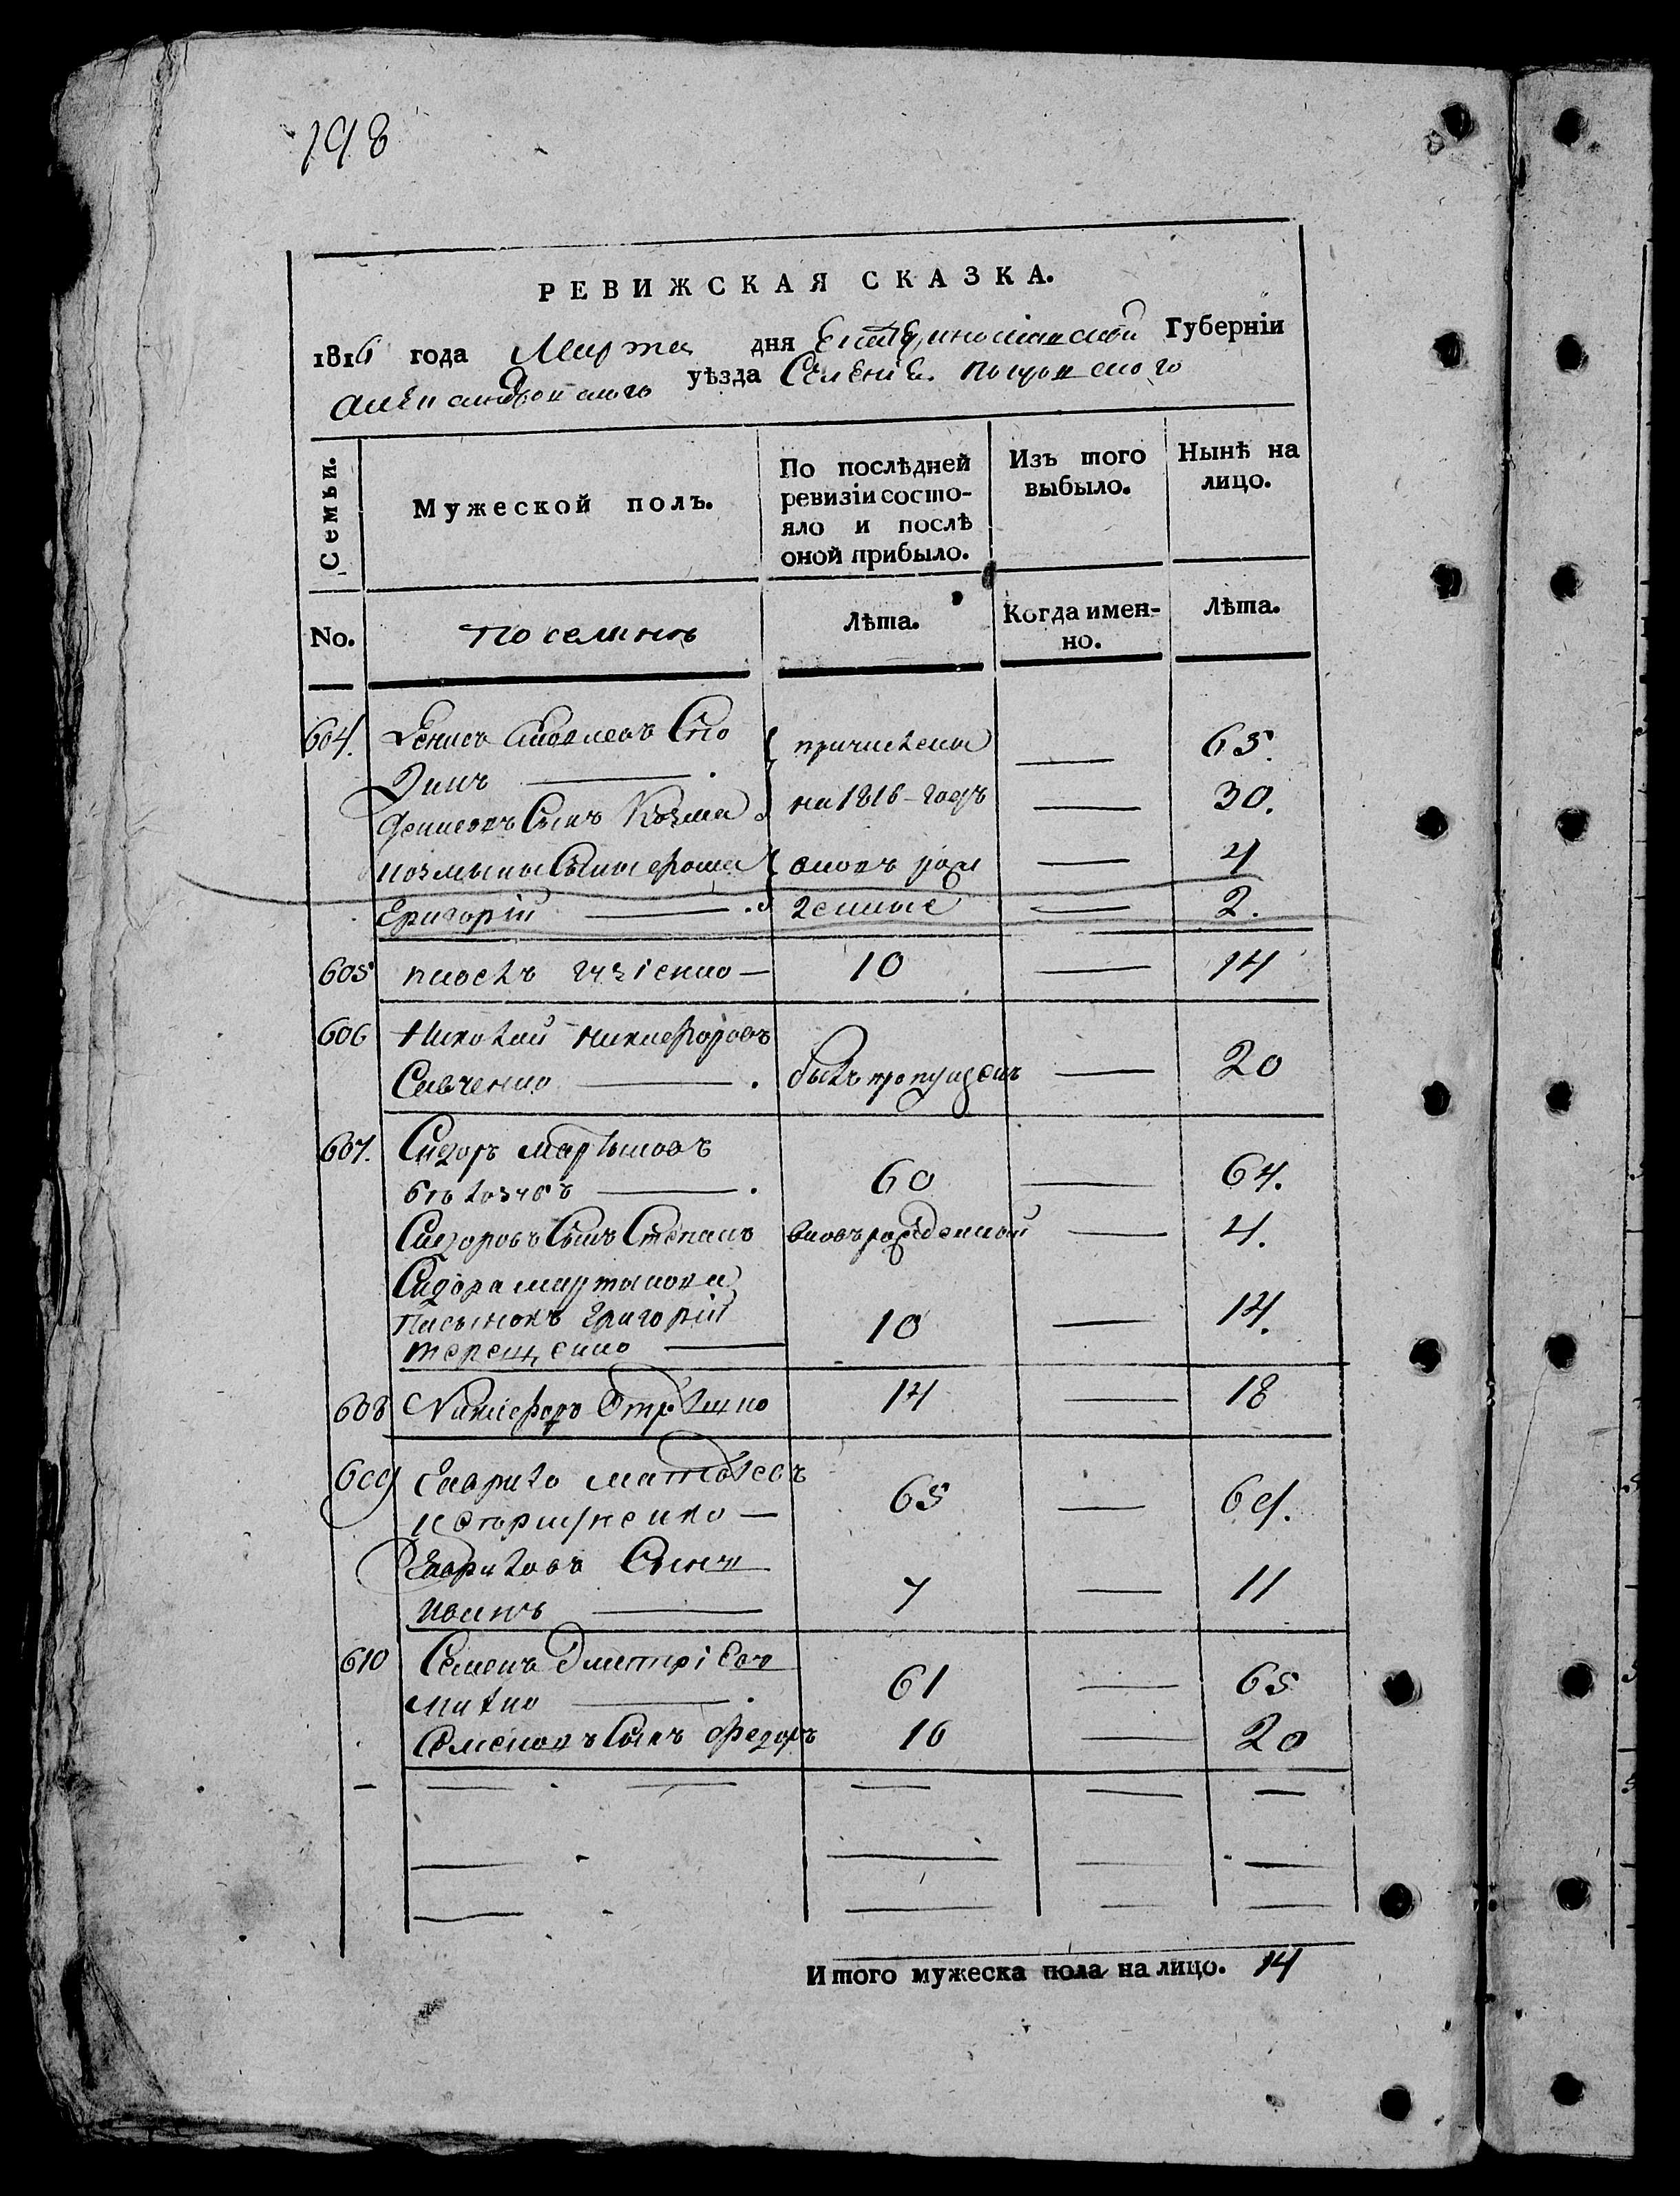 198
РЕВИЖСКАЯ СКАЗКА.
1816 года Марта дня Екатериносланской Губерніи
александровскаго уѣзда Селеніе покровского
Семьи.
Мужеской полъ.
По послѣдней ревизіи состо-
яло и послѣ
оной прибыло.
Изъ того
выбыло.
Нынѣ на
лицо.
No.
Лѣта.
Когда имен-
но.
Лѣта.
604. Денисъ Ско
динъ причислены 65.
Денисовъ Сынъ Козма на 1816 годъ 30.
козмины Сыны фома вновь рож 4
Григорій денные 2.
605 10 14
606 Николай Никифоровъ
Савченко былъ пропущенъ 20
607. Сидоръ Мартыновъ
60 64.
Сидоровъ Сынъ Степанъ вновьрожденной 4.
Сидора мартынова
Пасынокъ Григорій 10 14.
терещенко
608 Никифоръ 14 18
609 Гаврило Матвѣевъ
65 69.
Гавриловъ Сынъ
Иванъ 7 11
610 Семенъ Дмитріевъ
61 65
Семеновъ Сынъ Федоръ 16 20
Итого мужеска пола на лицо. 14